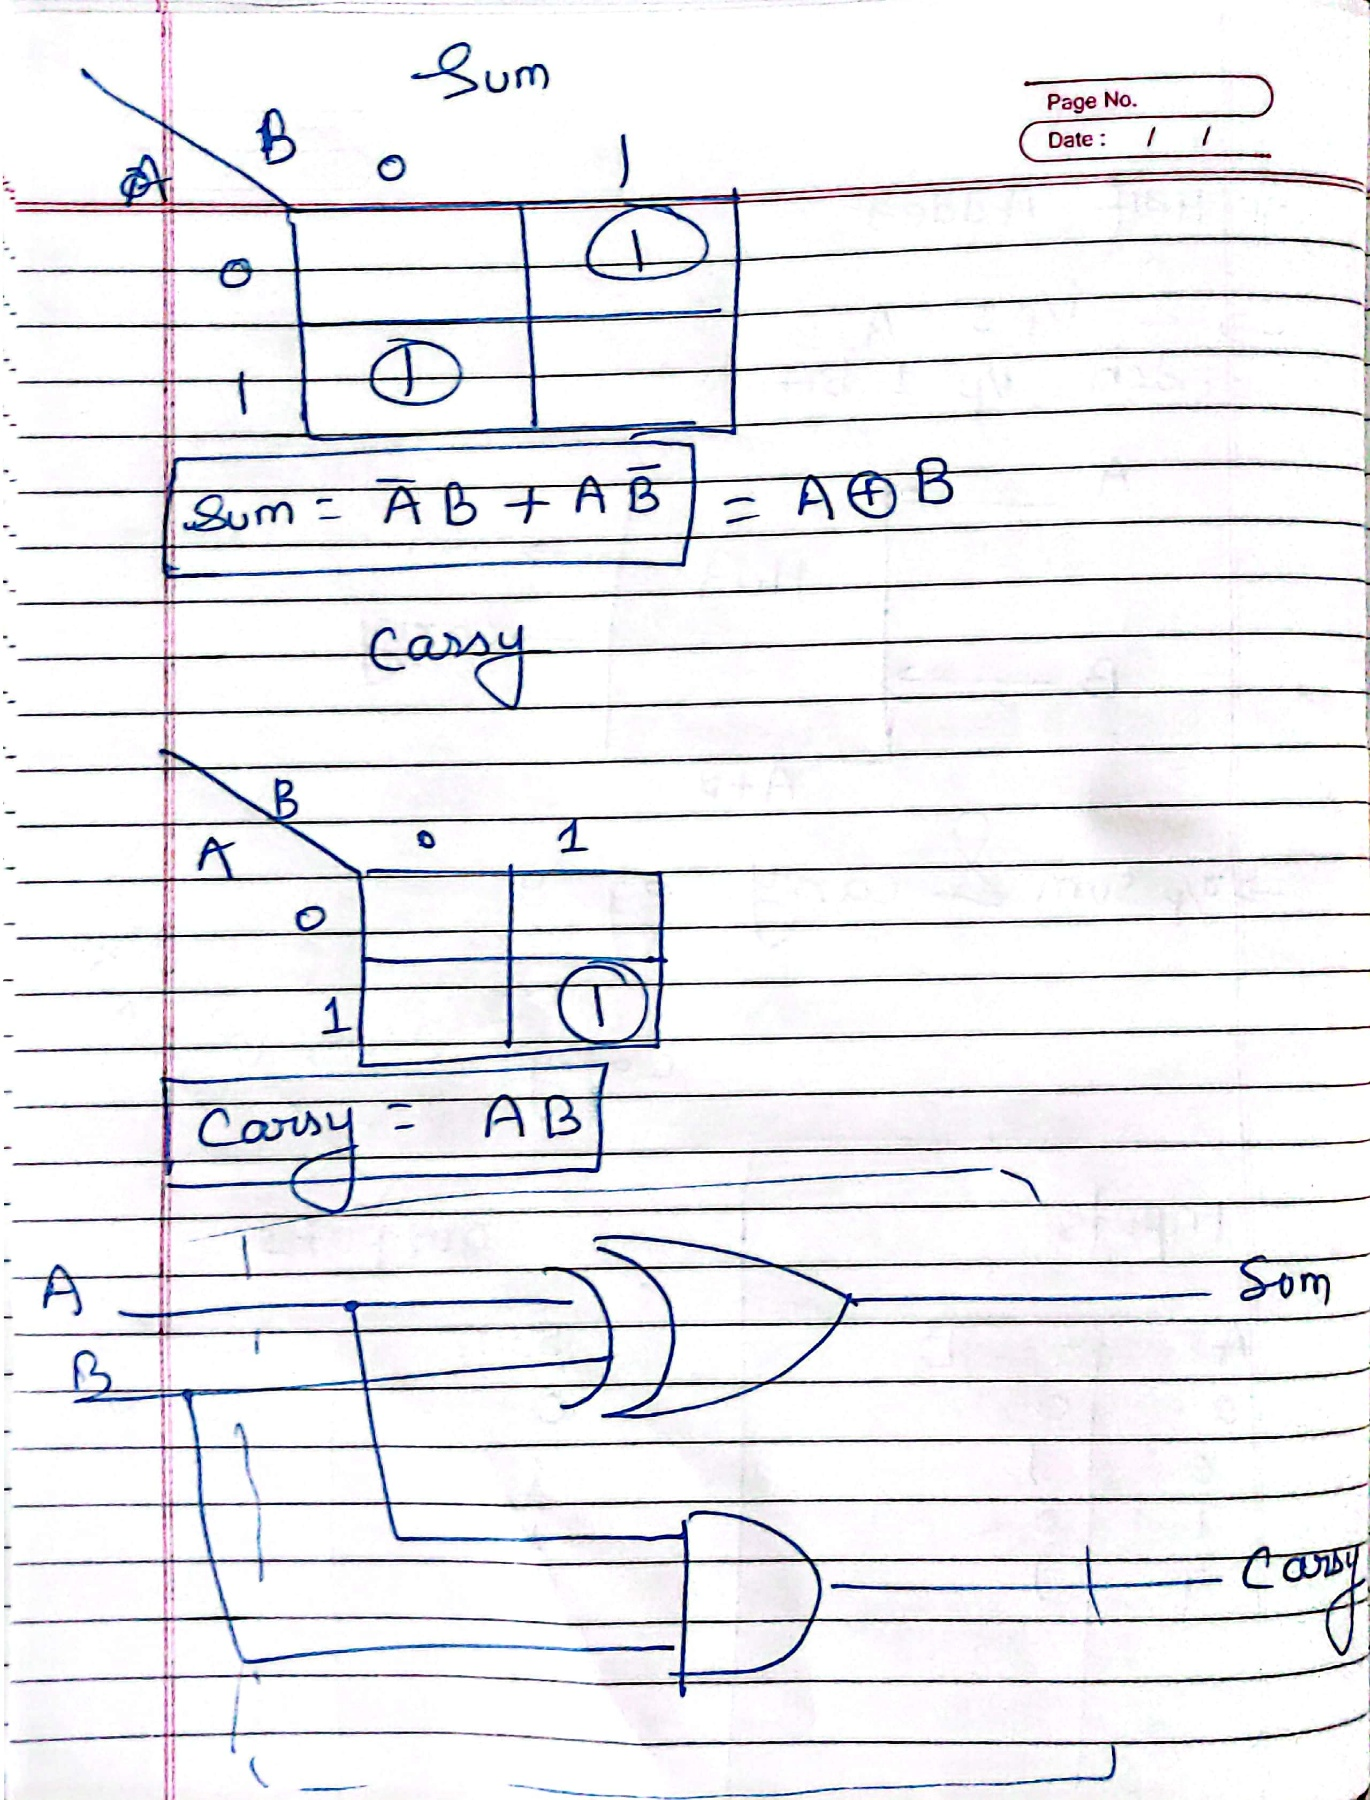 Sum
Page No.
Date : / /
B 0 1
A
0 1
1 1
Sum = A̅ B + A B̅ = A ⊕ B
Carry
B
A 0 1
0
1 1
Carry = AB
A Sum
B
Carry